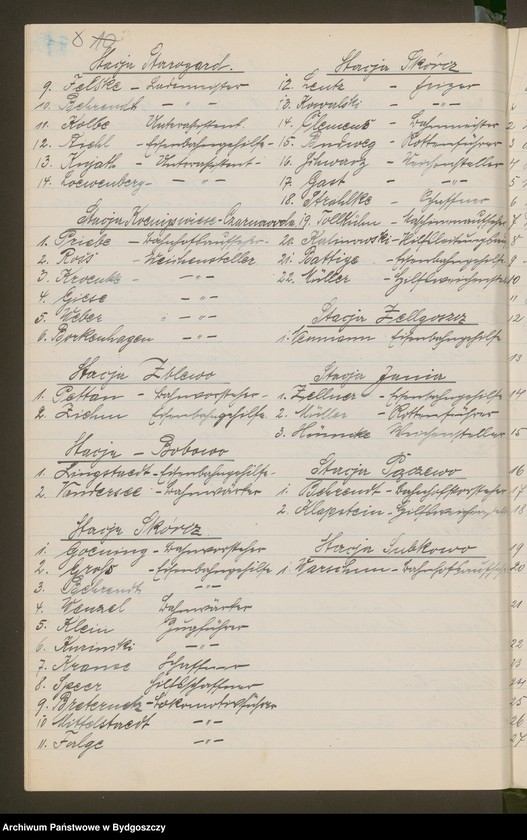 8
Stacja Starogard.
9. Felske - Lademeister
10. Behrendt - " -
11. Kolbe Unterassistent
12. Riehl - Eisenbahngehilfe -
13. Knjath - Unterassistent -
14. Loewenberg - " -
Stacja Koenigswiese-Czarnawoda
1. Priebe - Bahnhofsaufseher -
2. Ross - Weichensteller
3. - " -
4. Giese - " -
5. Weber - " -
6. Borkenhagen - " -
Stacja Zblewo
1. Pettan - Bahnvorsteher -
2. Ziehm - Eisenbahngehilfe
Stacja - Bobowo
1. Lingstaedt - Eisenbahngehilfe -
2. Vandersee - Bahnwärter
Stacja Skórcz
1. Goening - Bahnvorsteher
2. Groß - Eisenbahngehilfe
3. Behrendt - " -
4. Wenzel Bahnwärter
5. Klein Zugführer
6. Kaminski - " -
7. Krause Schaffner
8. Speer Hilfsschaffner
9. - Lokomotivführer
10. Mittelstaedt - " -
11. Falge - " -
Stacja Skórcz
12. Lentz - Heizer
13. Kowalski - " -
14. Clemens - Bahnmeister
15. - Rottenführer
16. Schwarz - Weichensteller
17. Gast - " -
18. Strahlke - Schaffner
19. Tollkühn -
20. Kalinowski -
21. Battige - Eisenbahngehilfe
22. Müller - Hilfsweichensteller
Stacja Zellgosz
1. Eisenbahngehilfe
Stacja Jania
1. Zellner - Eisenbahngehilfe
2. Müller - Rottenführer
3. Weichensteller
Stacja Pączewo
1. Behrendt - Bahnhofsvorsteher
2. Klapstein -
Stacja Subkowo
1. Warschun -
Archiwum Państwowe w Bydgoszczy